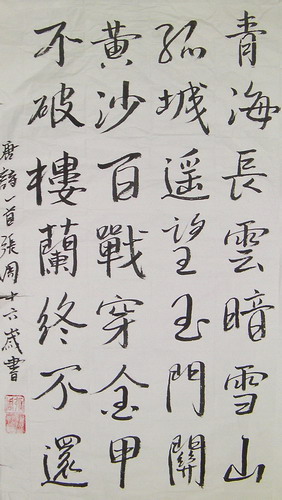 青海長雲暗雪山
孤城遥望玉門關
黄沙百戰穿金甲
不破樓蘭終不還
唐詩一首張周十六歲書